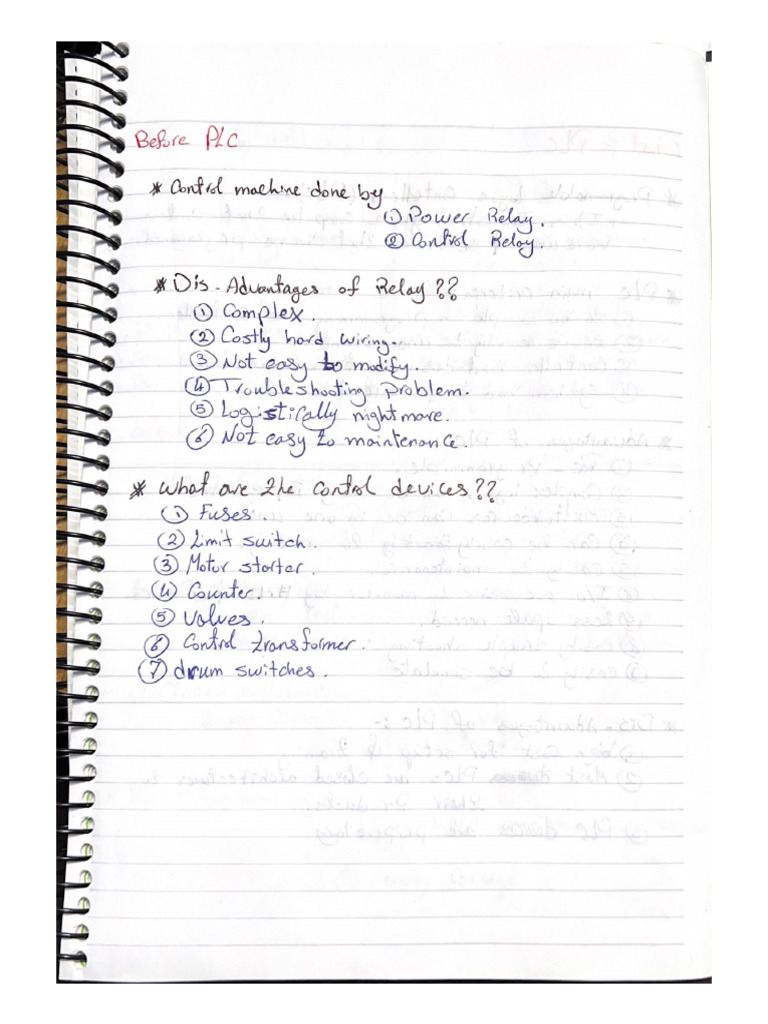 Before PLC
* Control machine done by
① Power Relay.
② Control Relay.
* Dis-Advantages of Relay??
① Complex.
② Costly hard wiring.
③ Not easy to modify.
④ Troubleshooting problem.
⑤ Logistically nightmare.
⑥ Not easy to maintenance.
* What are the control devices??
① Fuses.
② Limit switch.
③ Motor starter.
④ Counter.
⑤ Valves.
⑥ Control transformer.
⑦ drum switches.